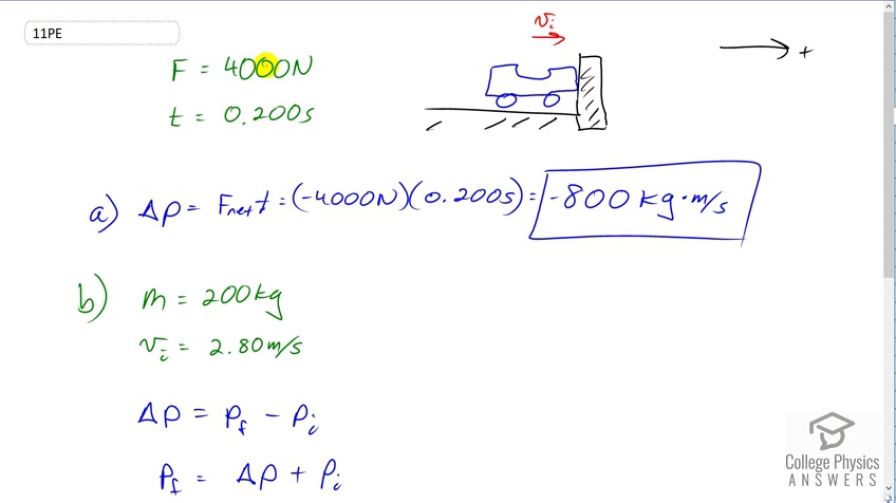 11PE
v_i
+
F = 4000N
t = 0.200s
a) Δp = F_net t = (-4000N)(0.200s) = -800 kg·m/s
b) m = 200kg
v_i = 2.80m/s
Δp = p_f - p_i
p_f = Δp + p_i
College Physics
ANSWERS